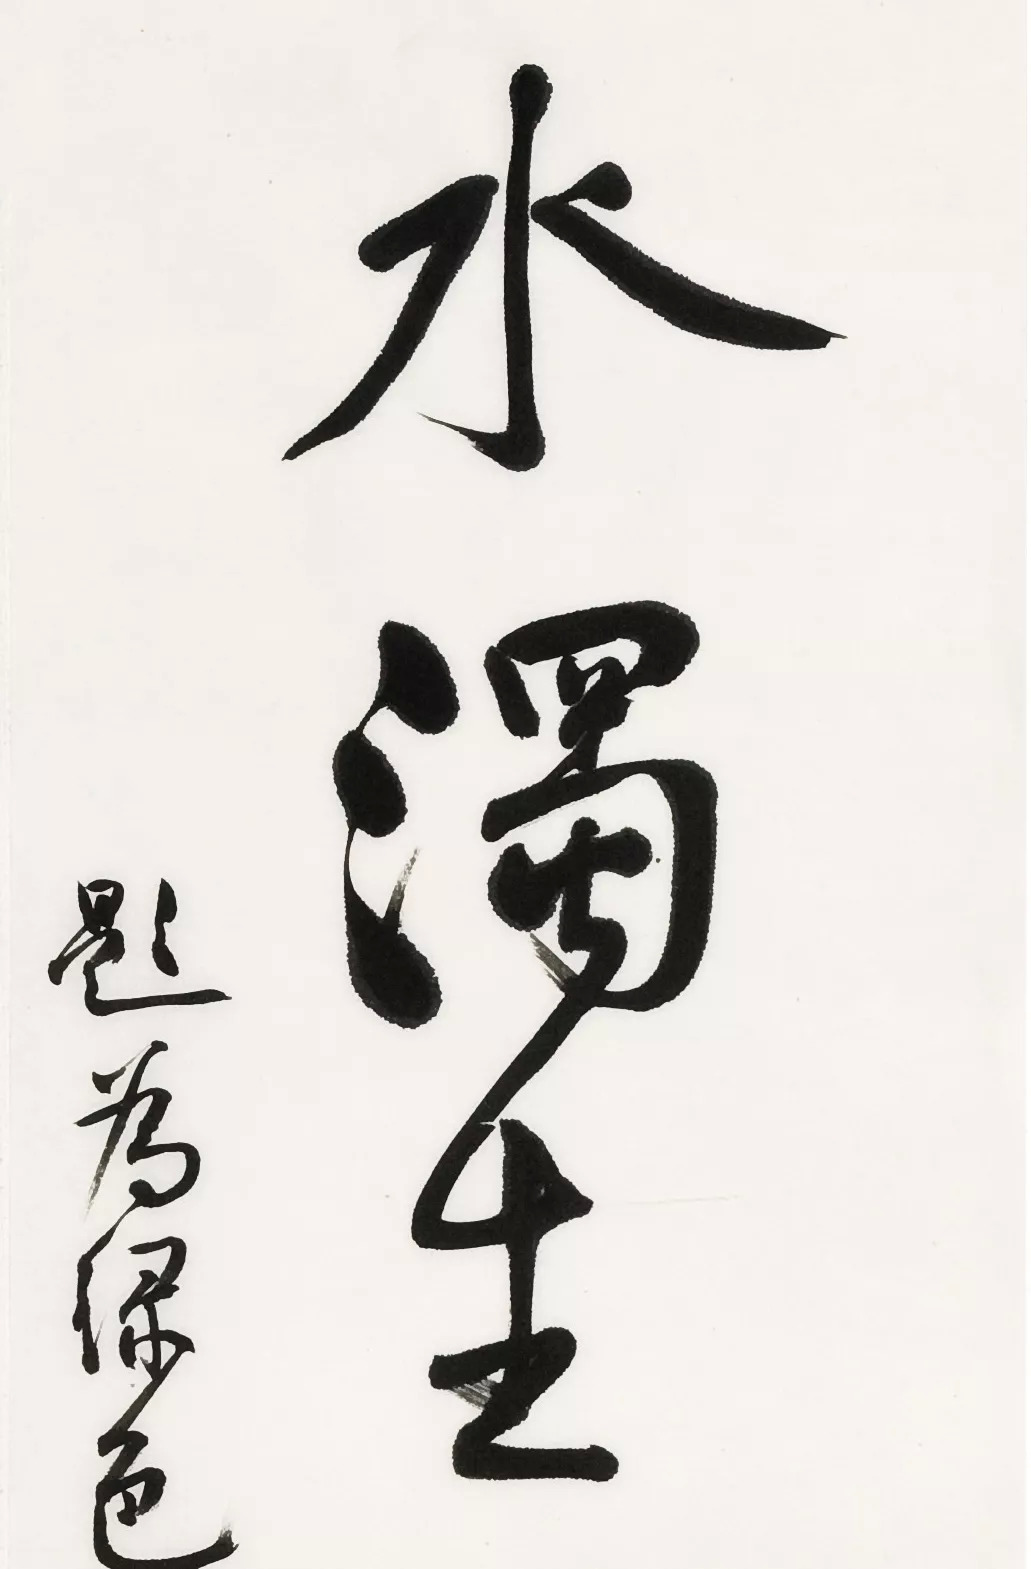 水濁生
題為綠色